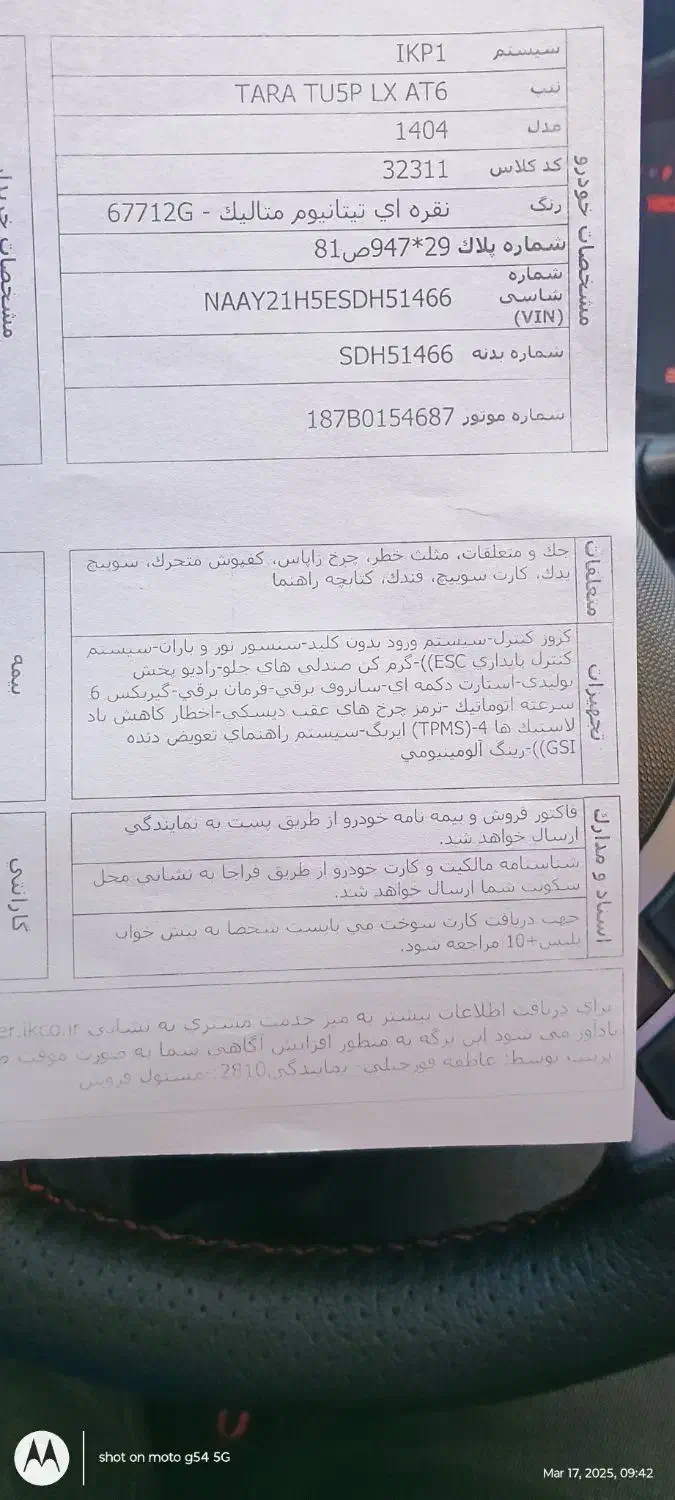 مشخصات خودرو
سيستم IKP1
تيپ TARA TU5P LX AT6
مدل 1404
كد كلاس 32311
رنگ نقره اي تيتانيوم متاليك - 67712G
شماره پلاك 29*947ص81
شماره
شاسي
(VIN) NAAY21H5ESDH51466
شماره بدنه SDH51466
شماره موتور 187B0154687
متعلقات
جك و متعلقات، مثلث خطر، چرخ زاپاس، كفپوش متحرك، سوييچ
يدك، كارت سوييچ، فندك، كتابچه راهنما
تجهيزات
كروز كنترل-سيستم ورود بدون كليد-سنسور نور و باران-سيستم
كنترل پايداري ESC))-گرم كن صندلي هاي جلو-راديو پخش
توليدي-استارت دكمه اي-سانروف برقي-فرمان برقي-گيربكس 6
سرعته اتوماتيك -ترمز چرخ هاي عقب ديسكي-اخطار كاهش باد
لاستيك ها TPMS)-4) ايربگ-سيستم راهنماي تعويض دنده
GSI))-رينگ آلومينيومي
اسناد و مدارك
فاكتور فروش و بيمه نامه خودرو از طريق پست به نمايندگي
ارسال خواهد شد.
شناسنامه مالكيت و كارت خودرو از طريق فراجا به نشاني محل
سكونت شما ارسال خواهد شد.
جهت دريافت كارت سوخت مي بايست شخصا به پيش خوان
پليس+10 مراجعه شود.
براي دريافت اطلاعات بيشتر به ميز خدمت مشتري به نشاني er.ikco.ir
يادآور مي شود اين برگه به منظور افزايش آگاهي شما به صورت موقت
پرينت توسط: عاطفه - نمايندگي2810: -مسئول فروش
مشخصات
بيمه
گارانتي
shot on moto g54 5G
Mar 17, 2025, 09:42